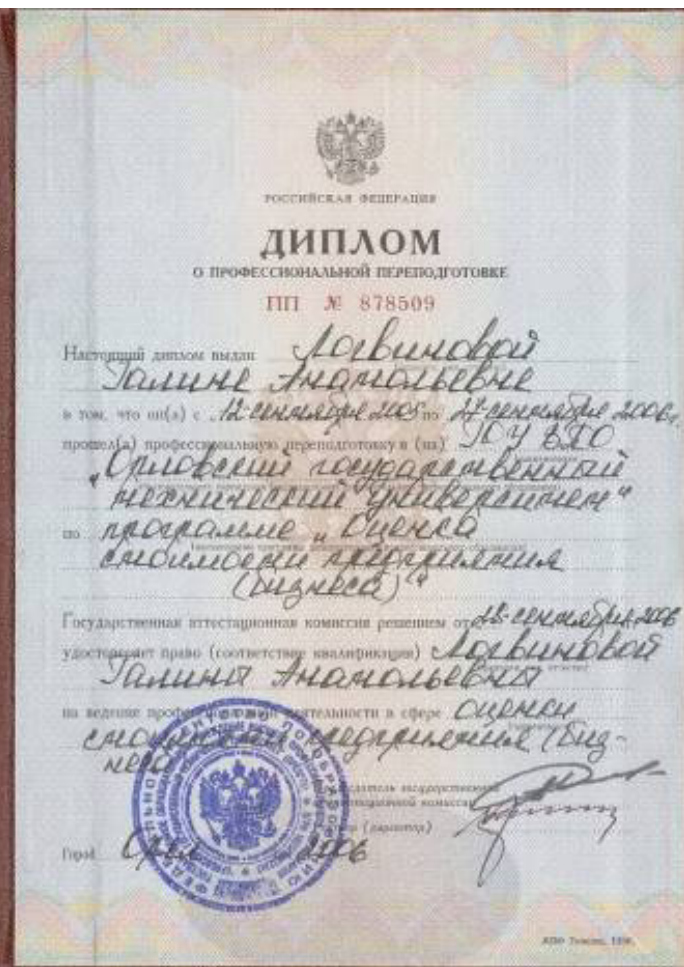 РОССИЙСКАЯ ФЕДЕРАЦИЯ
ДИПЛОМ
О ПРОФЕССИОНАЛЬНОЙ ПЕРЕПОДГОТОВКЕ
ПП № 878509
Настоящий диплом выдан Логвиновой
Галине Анатольевне
в том, что он(а) с 12 сентября 2005 по 27 сентября 2006г.
прошел(а) профессиональную переподготовку в (на) ГОУ ВПО
"Орловский государственный
технический университет"
по программе "Оценка
стоимости предприятия
(бизнеса)"
Государственная аттестационная комиссия решением от 28 сентября 2006
удостоверяет право (соответствие квалификации) Логвиновой
Галины Анатольевны
на ведение профессиональной деятельности в сфере оценки
стоимости предприятия (биз-
неса)
Председатель государственной
аттестационной комиссии
Ректор (директор)
Город Орел 2006